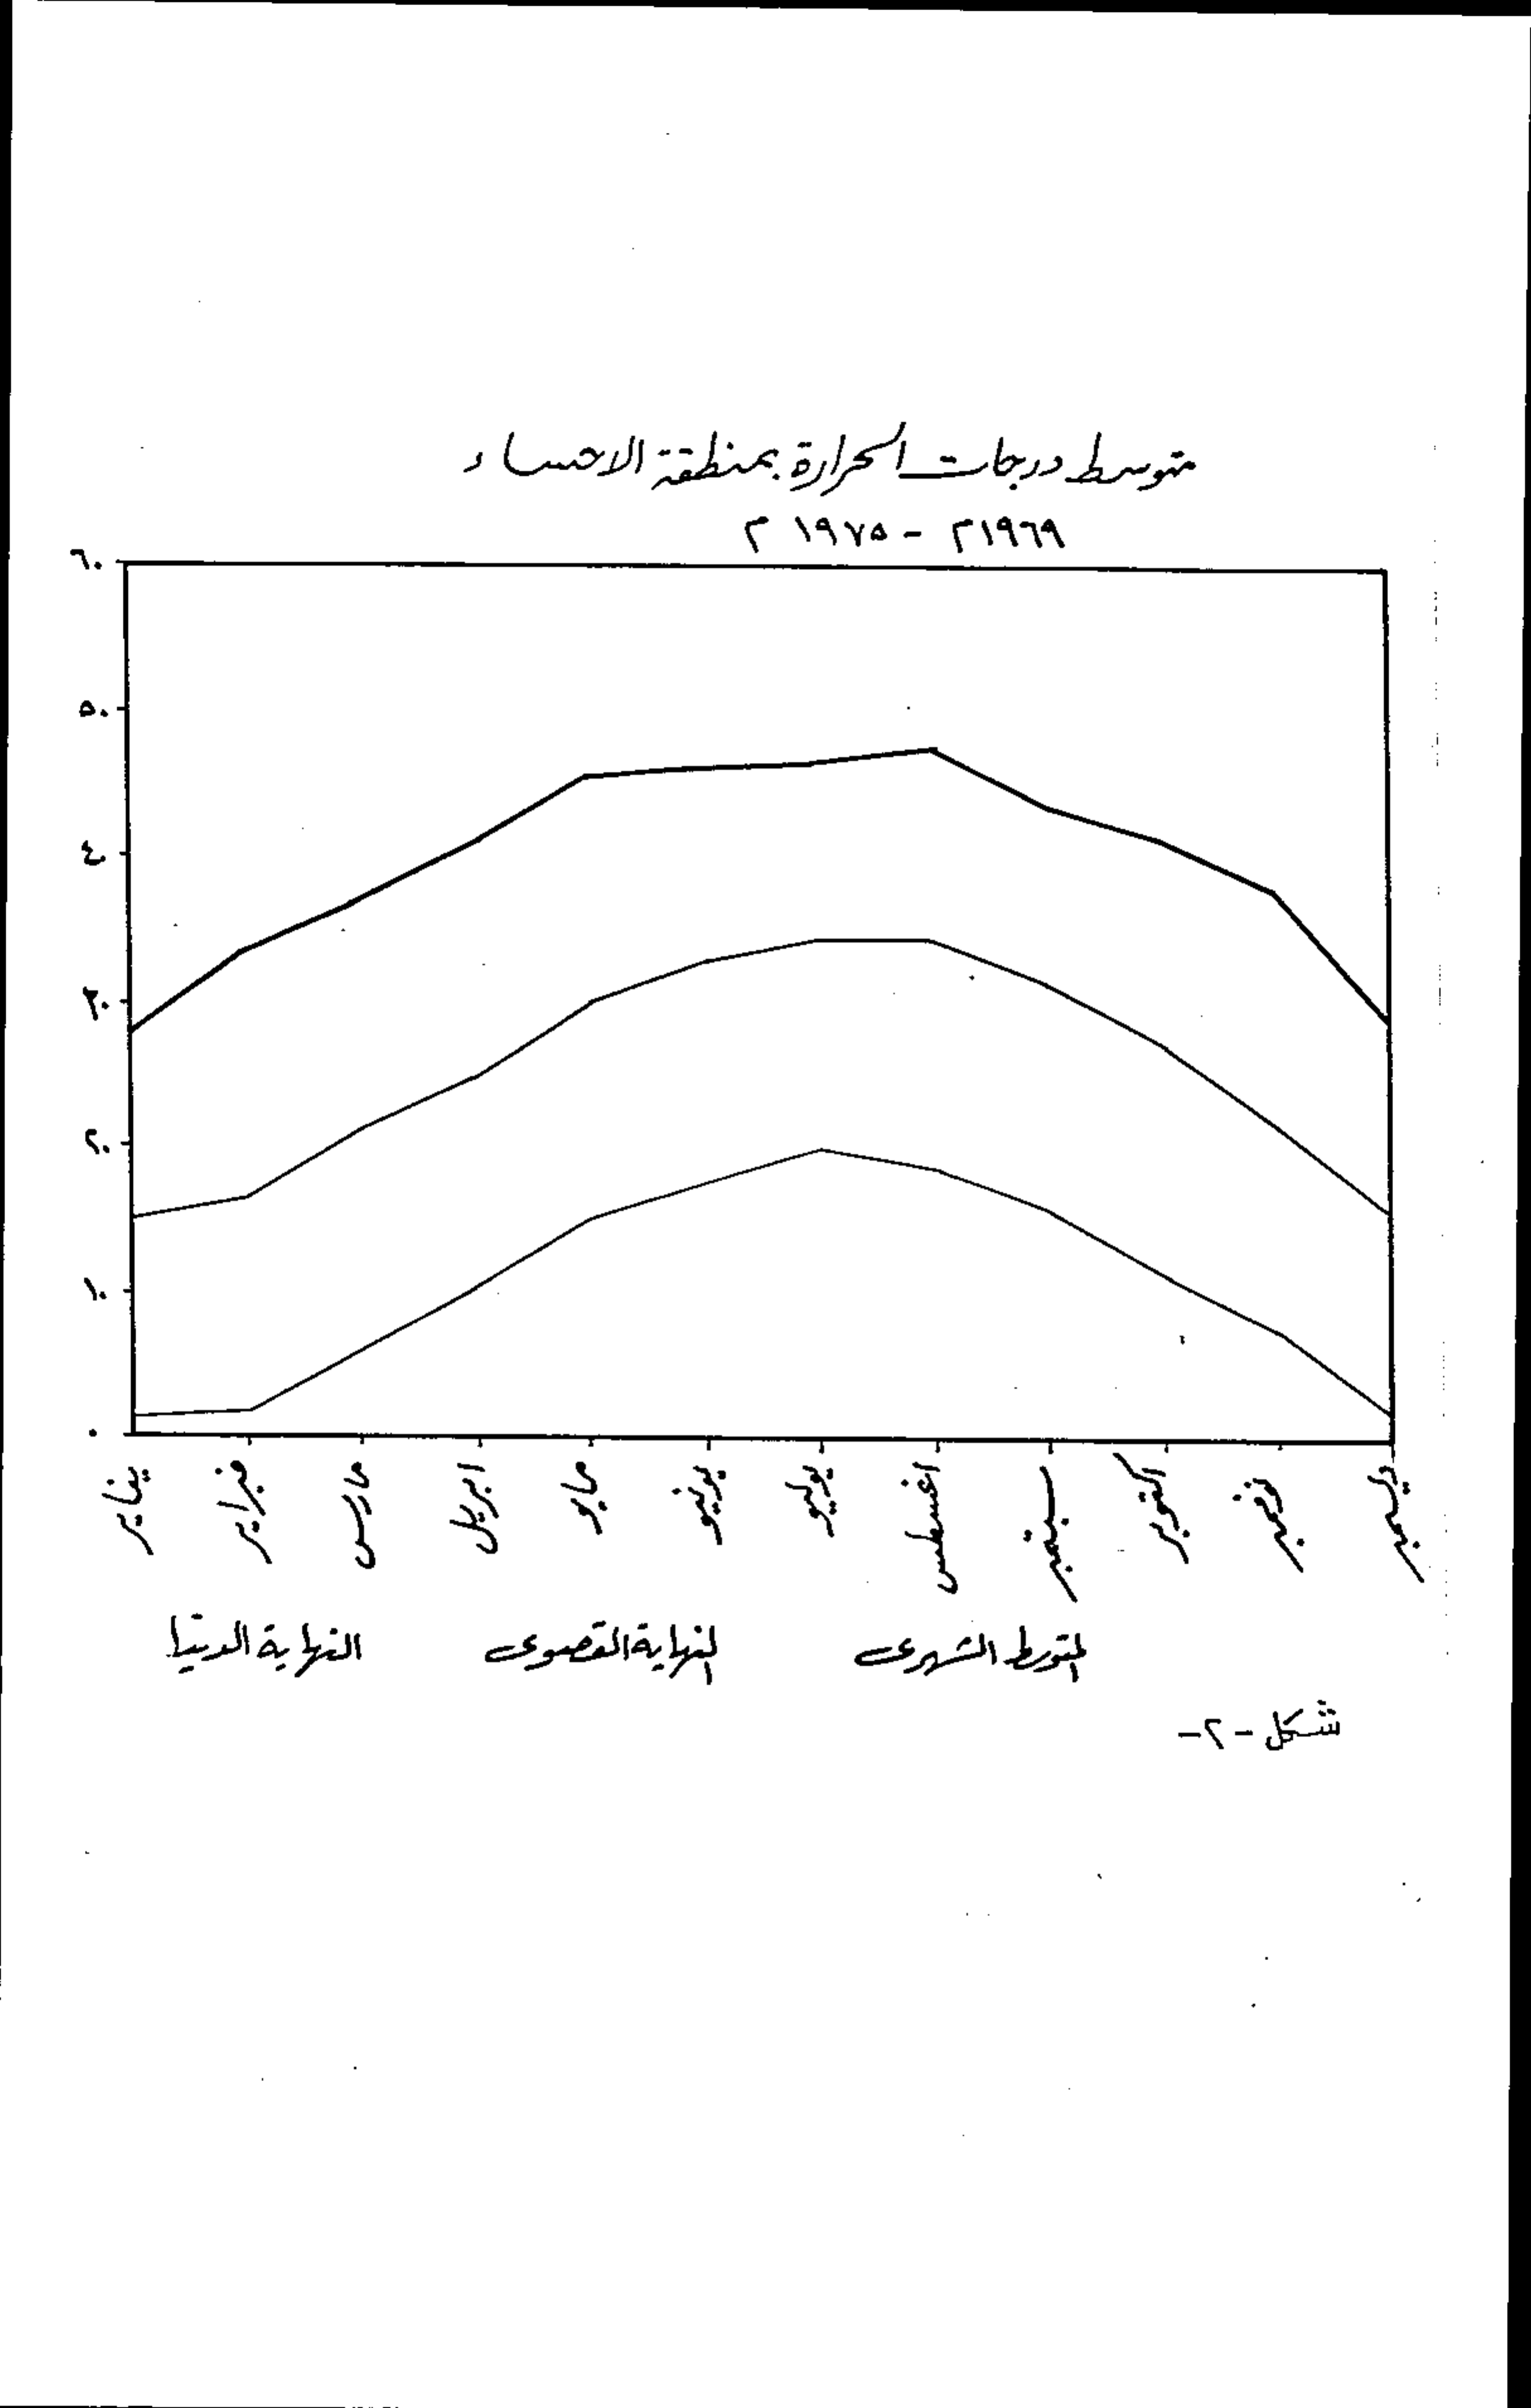 متوسط درجات الحرارة بمنطقة الاحساء
١٩٦٩م - ١٩٧٥م
٦٠
٥٠
٤٠
٣٠
٢٠
١٠
٠
يناير فبراير مارس ابريل مايو يونيو يوليو اغسطس سبتمبر اكتوبر نوفمبر ديسمبر
المتوسط الشهرى النهاية القصوى النهاية الدنيا
شكل -٢-